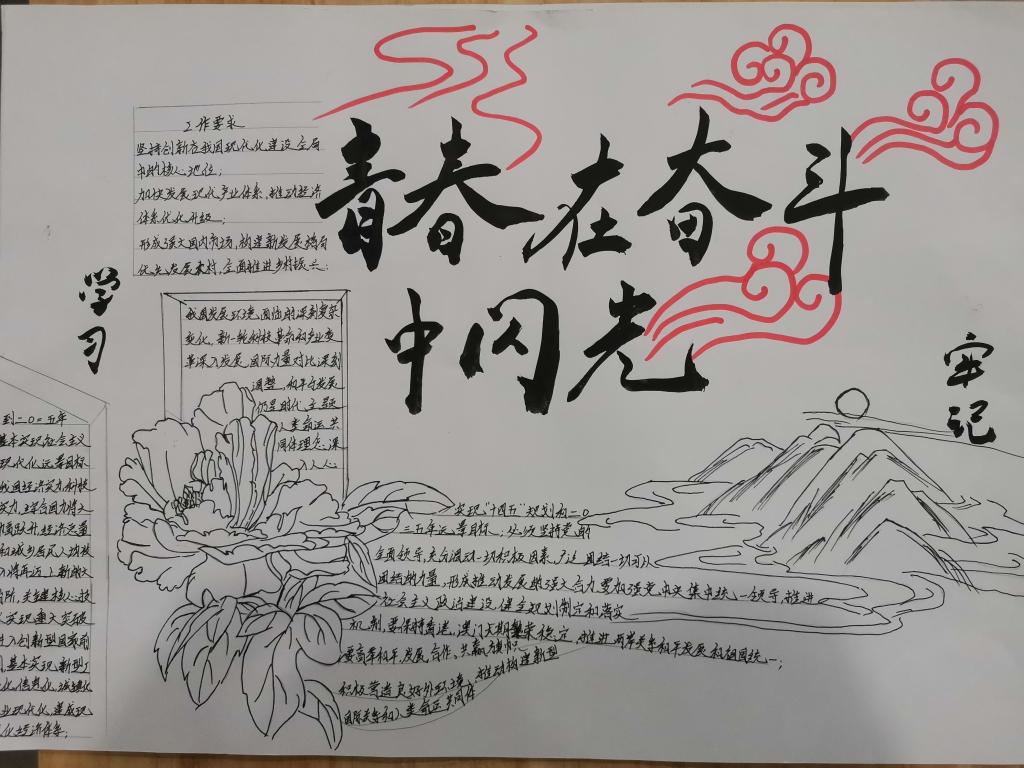 青春在奋斗
中闪光
学习
牢记
工作要求
坚持创新在我国现代化建设全局
中的核心地位;
加快发展现代产业体系,推动经济
体系优化升级;
形成强大国内市场,构建新发展格局
优先发展农村,全面推进乡村振兴;
我国发展环境面临的深刻复杂
变化,新一轮科技革命和产业变
革深入发展,国际力量对比深刻
调整,和平与发展
仍是时代主题
人类命运共
同体理念深
入人心
到二0三五年
基本实现社会主义
现代化远景目标
我国经济实力,科技
实力,综合国力将大
幅跃升,经济总量
和城乡居民人均收
入将再迈上新的大
台阶,关键核心技
术实现重大突破
进入创新型国家前
基本实现新型工
业化,信息化,城镇化
业现代化,建成现
化经济体系;
实现"十四五"规划和二0
三五年远景目标,必须坚持党的
全面领导,充分调动一切积极因素,广泛团结一切可以
团结的力量,形成推动发展的强大合力,要加强党中央集中统一领导,推进
社会主义政治建设,健全规划制定和落实
机制,要保持香港,澳门长期繁荣稳定,推进两岸关系和平发展和祖国统一;
要高举和平,发展,合作,共赢旗帜
积极营造良好外部环境,推动构建新型
国际关系和人类命运共同体